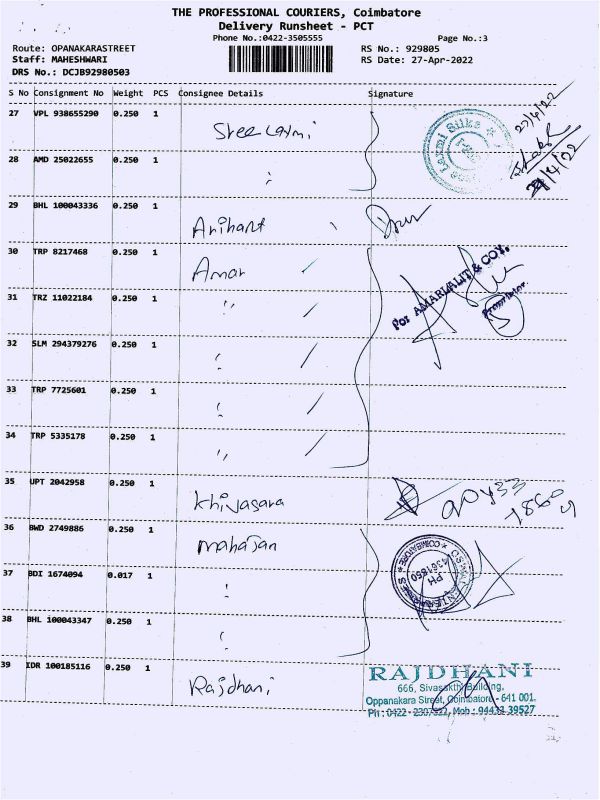 THE PROFESSIONAL COURIERS, Coimbatore
Delivery Runsheet - PCT
Phone No.:0422-3505555 Page No.:3
Route: OPANAKARASTREET RS No.: 929805
Staff: MAHESHWARI RS Date: 27-Apr-2022
DRS No.: DCJB92980503
S No Consignment No Weight PCS Consignee Details Signature
27 VPL 938655290 0.250 1 Sree Laxmi
27/4/22
Laxmi Silks
28 AMD 25022655 0.250 1 "
29 BHL 100043336 0.250 1 Arihant
30 TRP 8217468 0.250 1 Amar
For AMARLALIT & COY.
Proprietor.
31 TRZ 11022184 0.250 1 "
32 SLM 294379276 0.250 1 "
33 TRP 7725601 0.250 1 "
34 TRP 5335178 0.250 1 "
35 UPT 2042958 0.250 1 Khivasara
36 BWD 2749886 0.250 1 Mahajan
COIMBATORE
PH
37 BDI 1674094 0.017 1 "
38 BHL 100043347 0.250 1 "
39 IDR 100185116 0.250 1 Rajdhani
RAJDHANI
666, Sivasakthi Building,
Oppanakara Street, Coimbatore - 641 001.
Ph : 0422 - Mob : 94433 39527